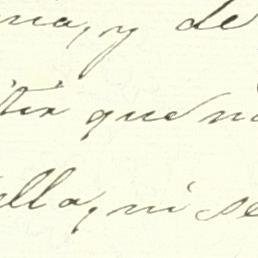 na, y de
tir que n
ella, ni se